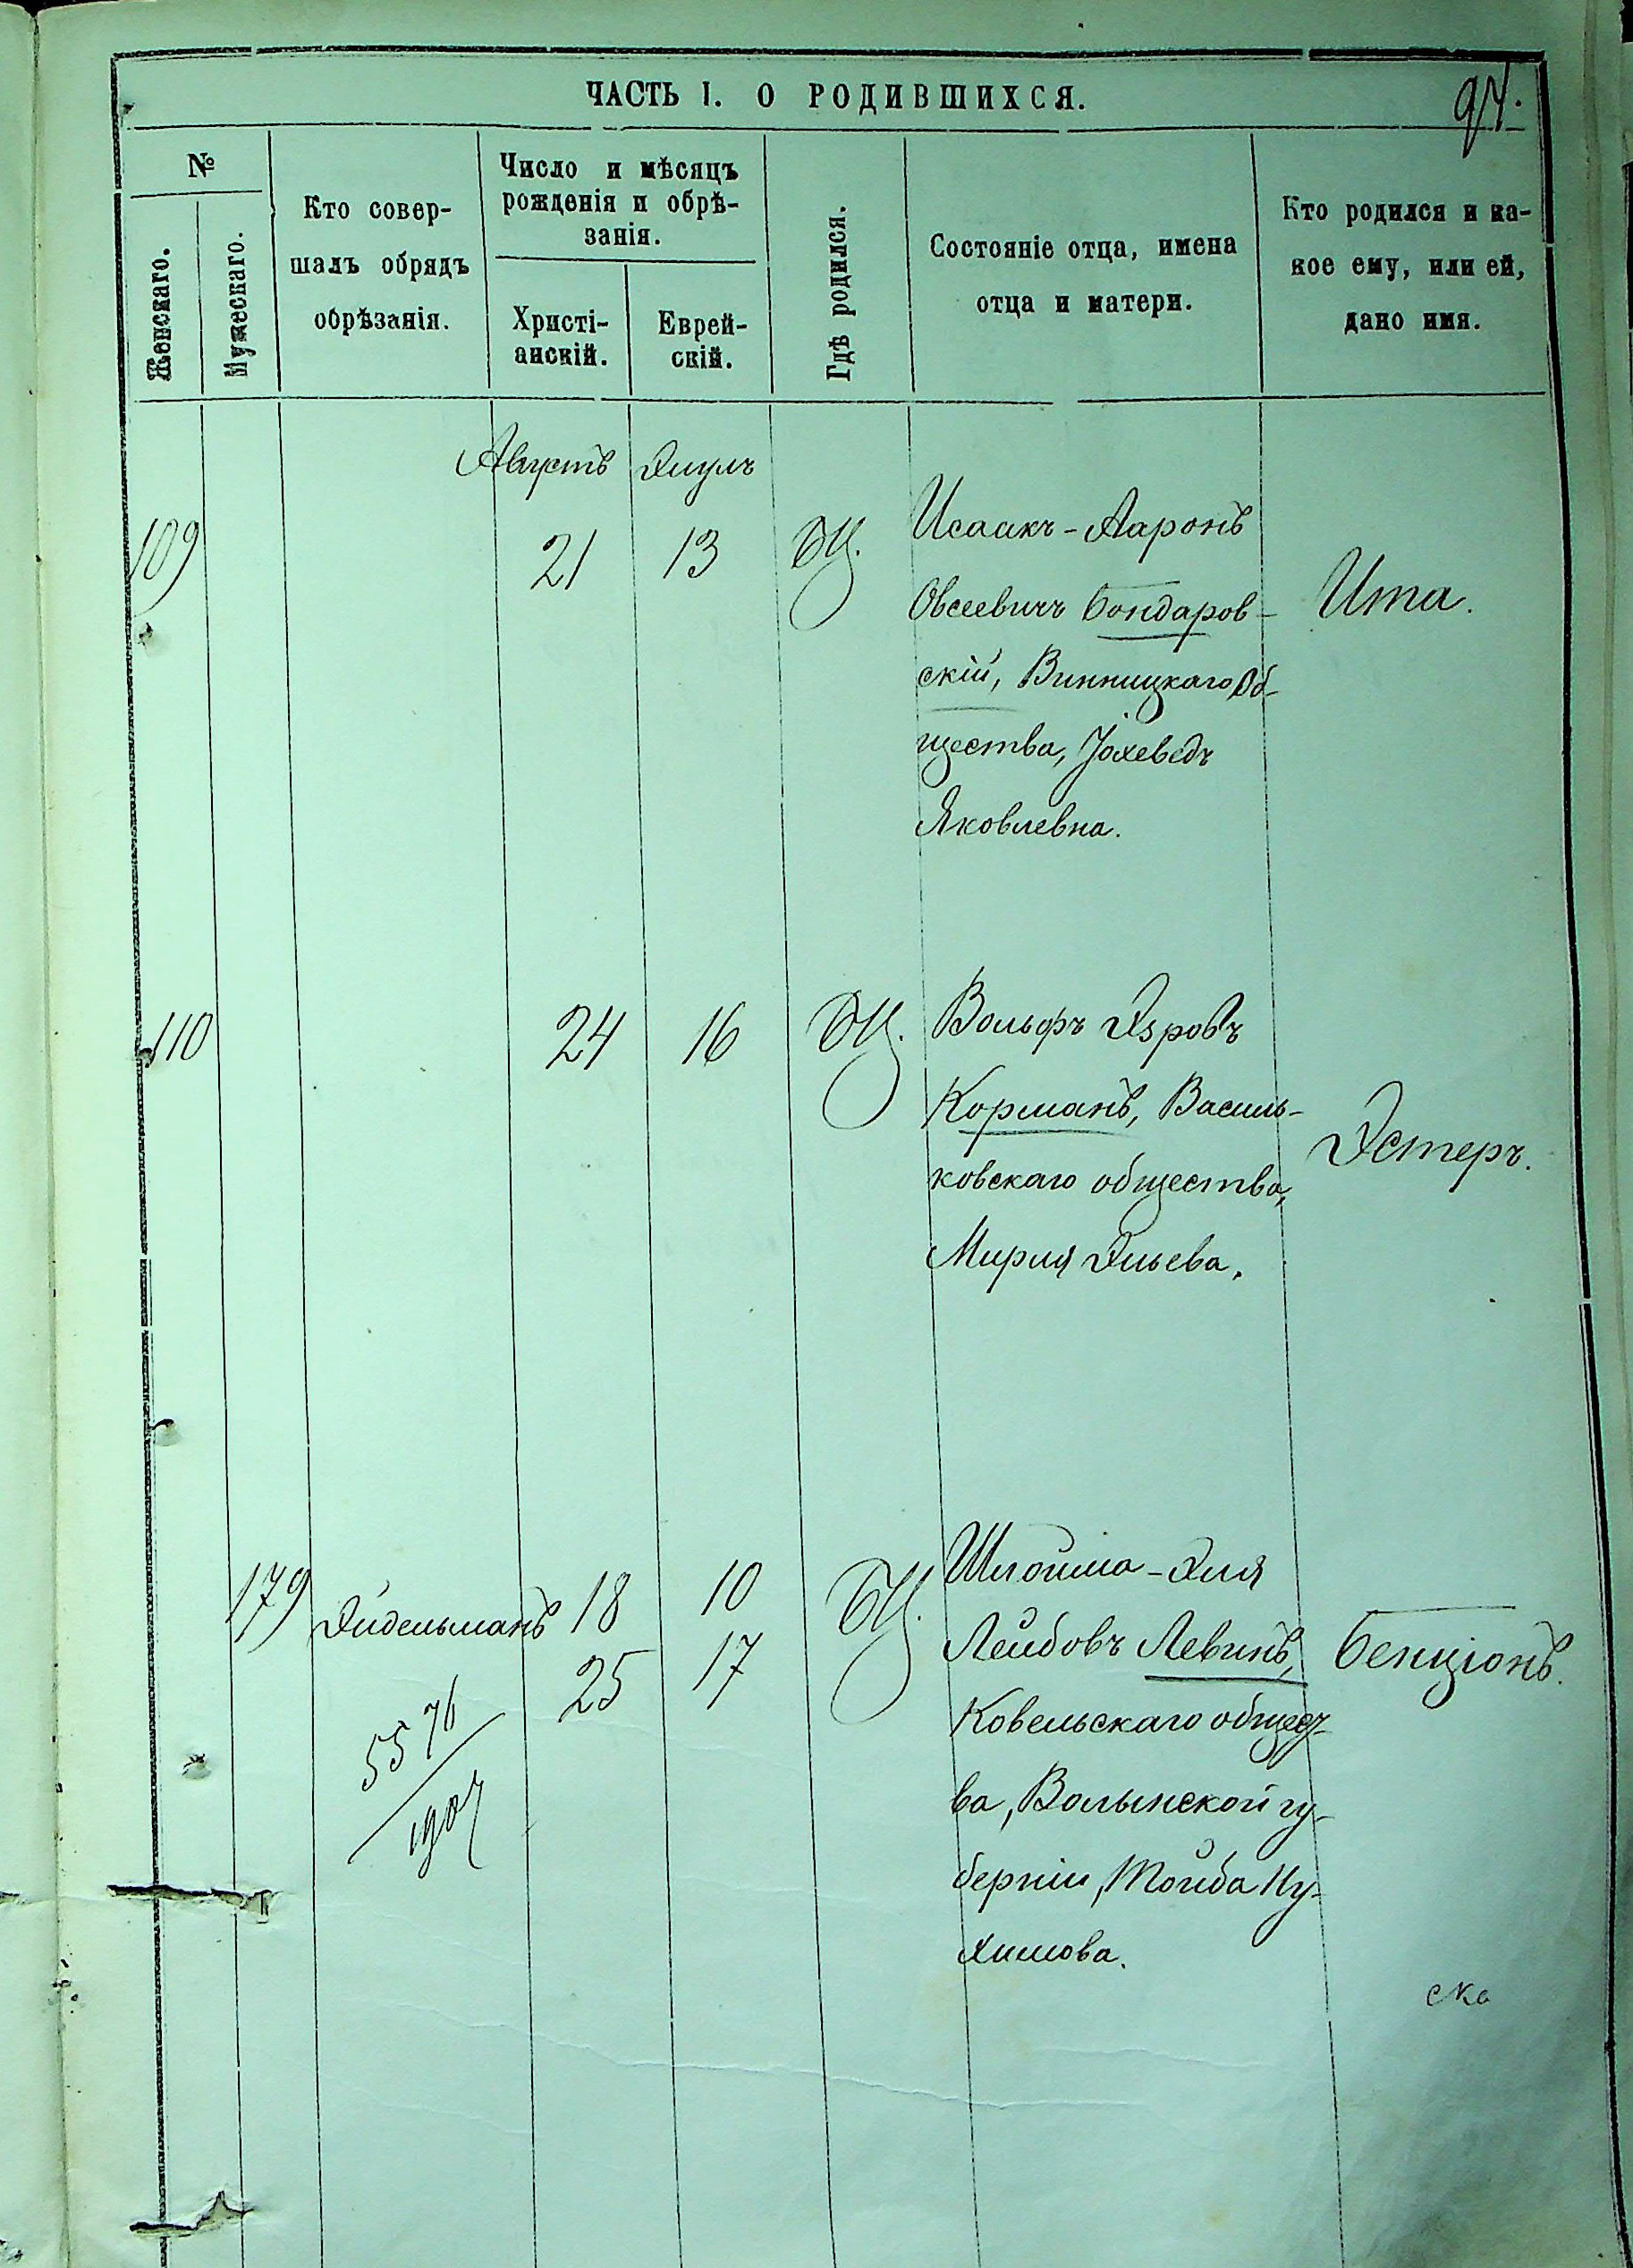 ЧАСТЬ I. О РОДИВШИХСЯ.
№
Женскаго.
Мужескаго.
Кто совер-
шалъ обрядъ
обрѣзанія.
Число и мѣсяцъ
рожденія и обрѣ-
занія.
Христі-
анскій.
Еврей-
скій.
Гдѣ родился.
Состояніе отца, имена
отца и матери.
Кто родился и ка-
кое ему, или ей,
дано имя.
Августъ Элулъ
109 21 13 БЦ.
Исаакъ-Ааронъ
Овсеевичъ Бондаров-
скій, Винницкаго об-
щества, Іохеведъ
Яковлевна.
Ита.
110 24 16 БЦ.
Вольфъ Эзровъ
Корманъ, Василь-
ковскаго общества,
Мирля Эльева.
Эстеръ.
179 Эйдельманъ 18 10 БЦ.
25 17
5576
Шлойма-Эля
Лейбовъ Левинъ,
Ковельскаго общест-
ва, Волынской гу-
берніи, Тойба Ну-
химова.
Бенціонъ.